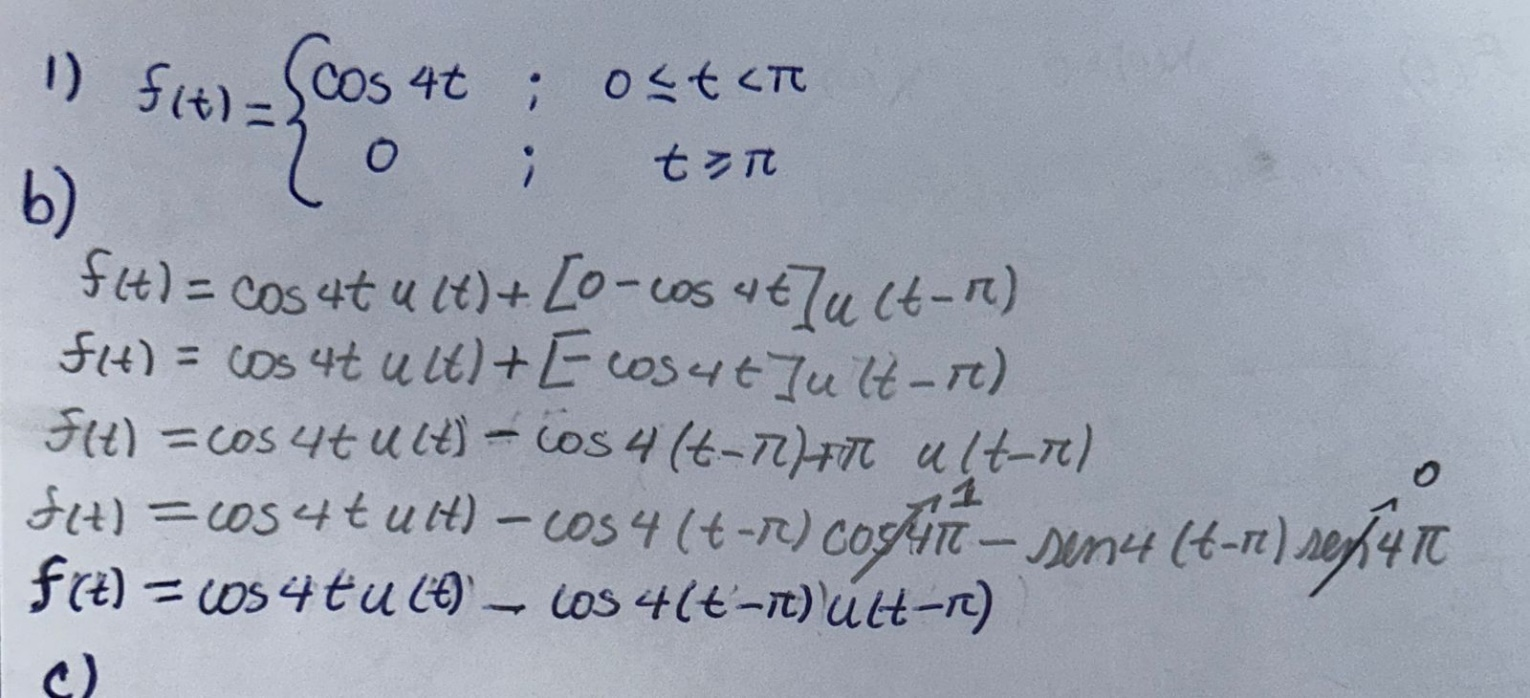 1) f(t) = { cos 4t ; 0 ≤ t < π
0 ; t ≥ π
b)
f(t) = cos 4t u(t) + [0 - cos 4t] u(t-π)
f(t) = cos 4t u(t) + [- cos 4t] u(t-π)
f(t) = cos 4t u(t) - cos 4(t-π)+π u(t-π)
f(t) = cos 4t u(t) - cos 4(t-π) cos 4π ↗1 - sen 4(t-π) sen 4π ↗0
f(t) = cos 4t u(t) - cos 4(t-π) u(t-π)
c)